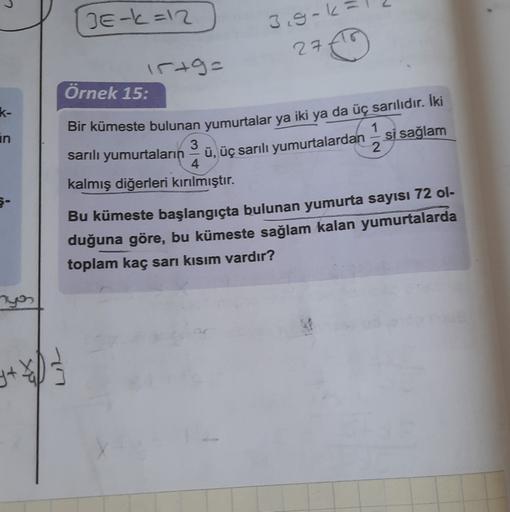 3E-k=12
3.9-k=12
27 15
15+9=
Örnek 15:
k-
Bir kümeste bulunan yumurtalar ya iki ya da üç sarılıdır. İki
in
sarılı yumurtaların 3/4 ü, üç sarılı yumurtalardan 1/2 si sağlam
kalmış diğerleri kırılmıştır.
ş-
Bu kümeste başlangıçta bulunan yumurta sayısı 72 ol-
duğuna göre, bu kümeste sağlam kalan yumurtalarda
toplam kaç sarı kısım vardır?